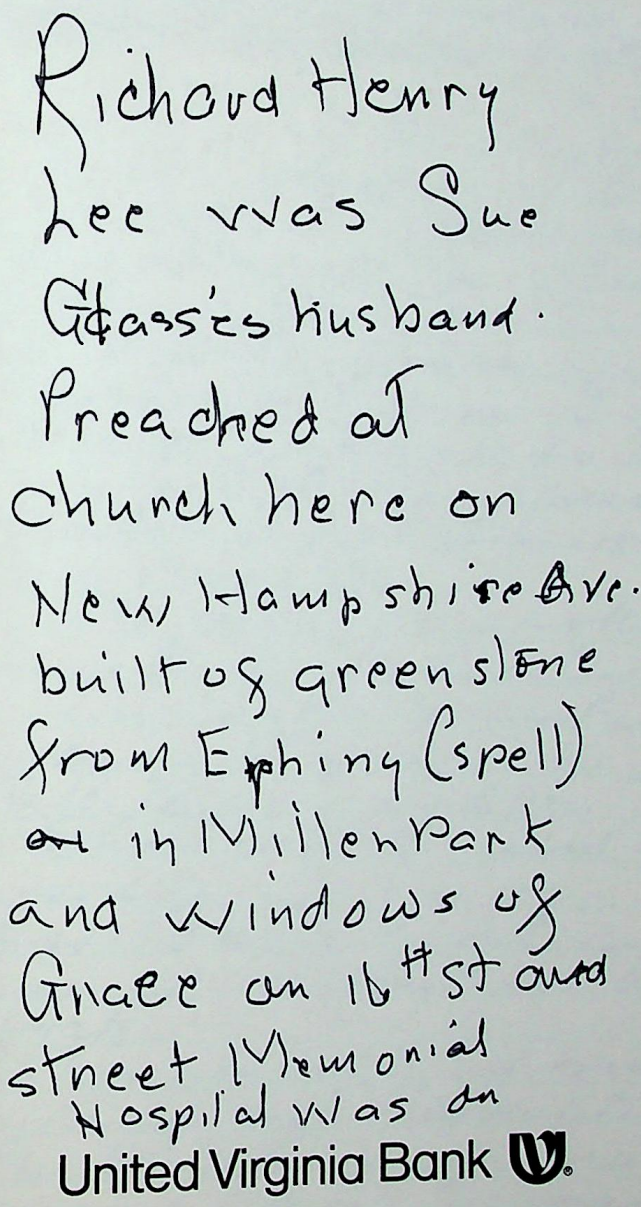 Richard Henry
Lee was Sue
Glass's husband.
Preached at
church here on
New Hampshire Ave.
built of green stone
from Ephing (spell)
in Miller Park
and windows of
Grace on 16th st and
street Memorial
Hospital was on
United Virginia Bank